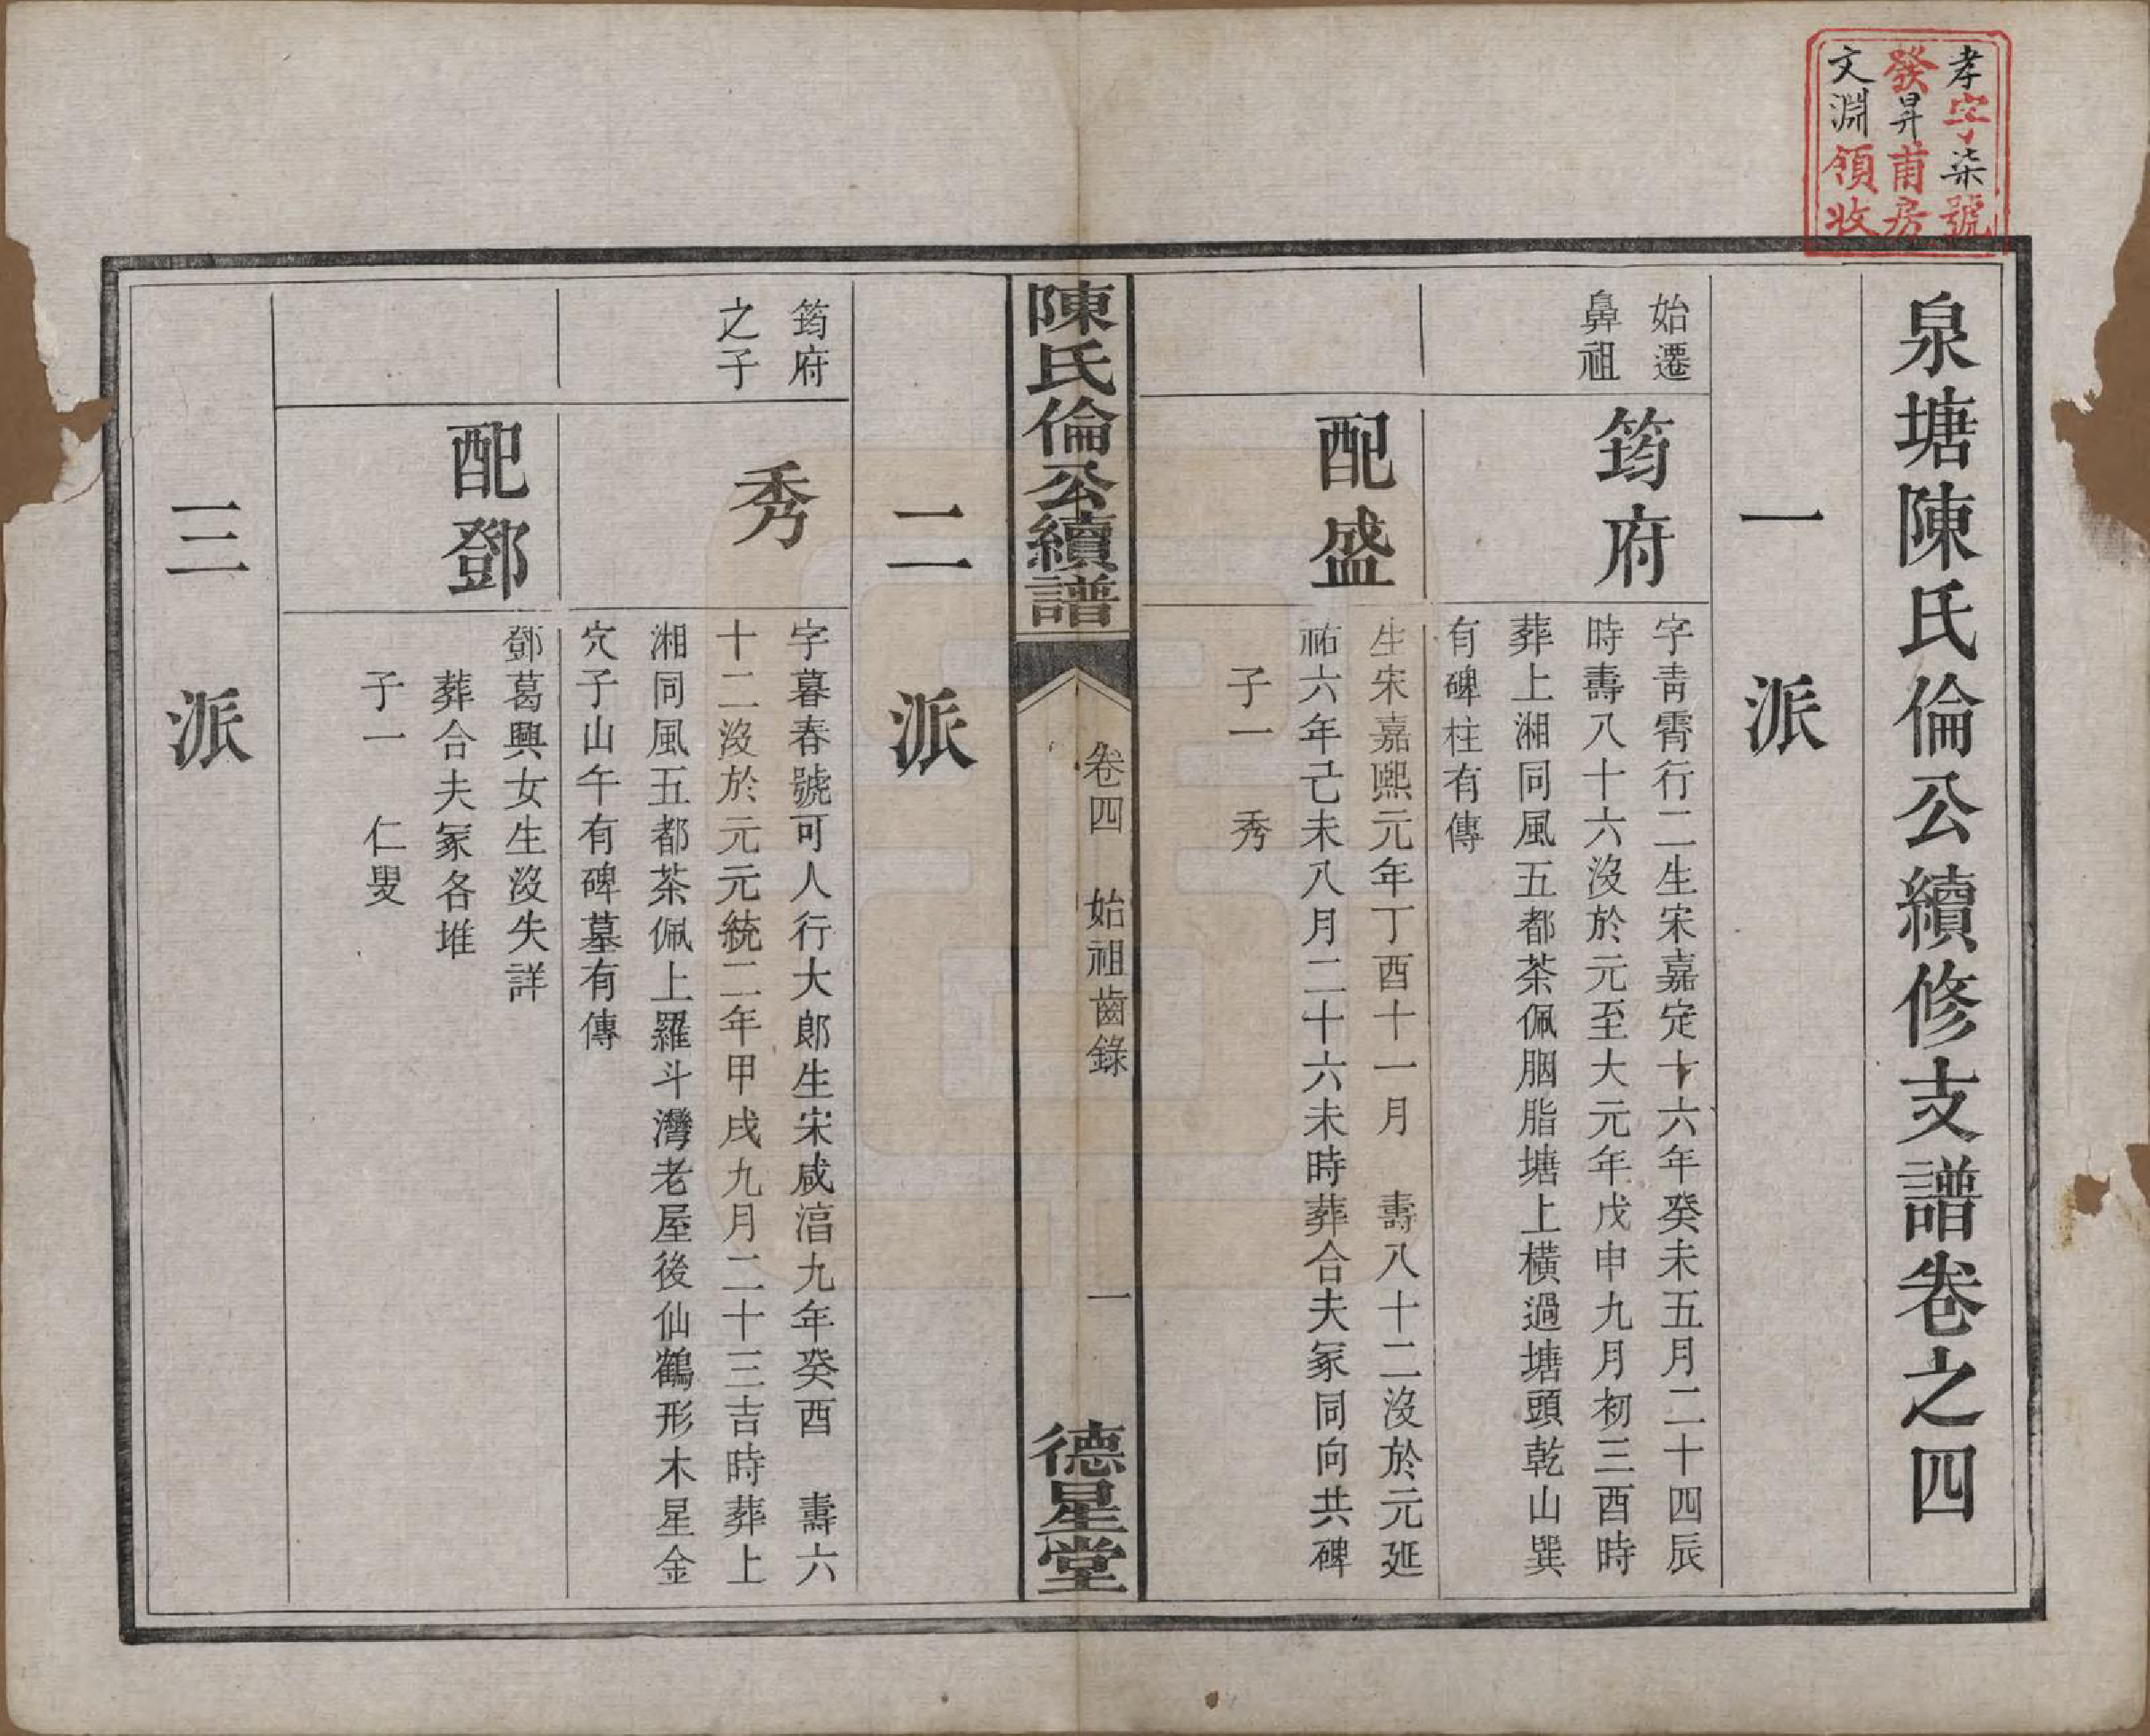 孝字柒號
發昇甫房
文淵領收
泉塘陳氏倫公續修支譜卷之四
一派
始遷
鼻祖
筠府
字青霄行二生宋嘉定十六年癸未五月二十四辰
時壽八十六沒於元至大元年戊申九月初三酉時
葬上湘同風五都茶佩胭脂塘上橫過塘頭乾山巽
有碑柱有傳
配盛
生宋嘉熙元年丁酉十一月 壽八十二沒於元延
祐六年己未八月二十六未時葬合夫冢同向共碑
子一 秀
陳氏倫公續譜
卷四 始祖齒錄
一
德星堂
二派
筠府
之子
秀
字暮春號可人行大郎生宋咸淯九年癸酉 壽六
十二沒於元元統二年甲戌九月二十三吉時葬上
湘同風五都茶佩上羅斗灣老屋後仙鶴形木星金
穴子山午有碑墓有傳
配鄧
鄧葛興女生沒失詳
葬合夫冢各堆
子一 仁叟
三派